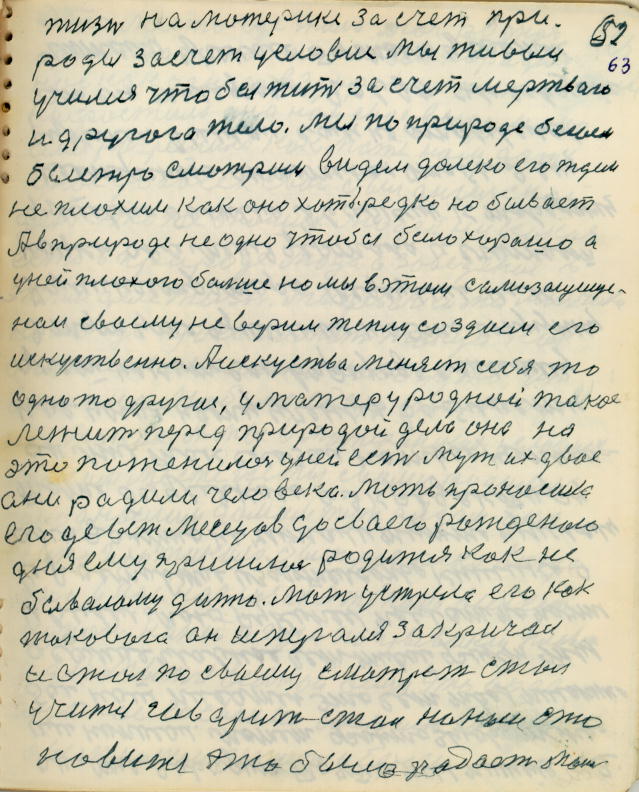 жизн на мотерике за счет при- 52
роды засчет условие мы живыи 63
училия что бы жит за счет мертваго
и другога тело. Мы по природе бегаем
быстро смотрим видем долеко его ждем
не плохим как оно хоть редко но бывает
А в природе не одно чтобы было хорашо а
у ней плохого болше но мы в этом самозащище-
нам своему не верим теплу создаем его
искуственно. А искуства меняет себя то
одно то другое, у матеру родной такое
лежит перед природой дела она на
это поженилоя у ней есть муж их двое
ани радили человека. Мать проносила
его девят месецов до сваего рожденого
дня ему пришлоя родится как не
бывалому дитю. Мат устрела его как
таковога ан испугаля закричал
и стал по своему смотрет стал
учится гаварит стал на ным это
новый это было радаст мат